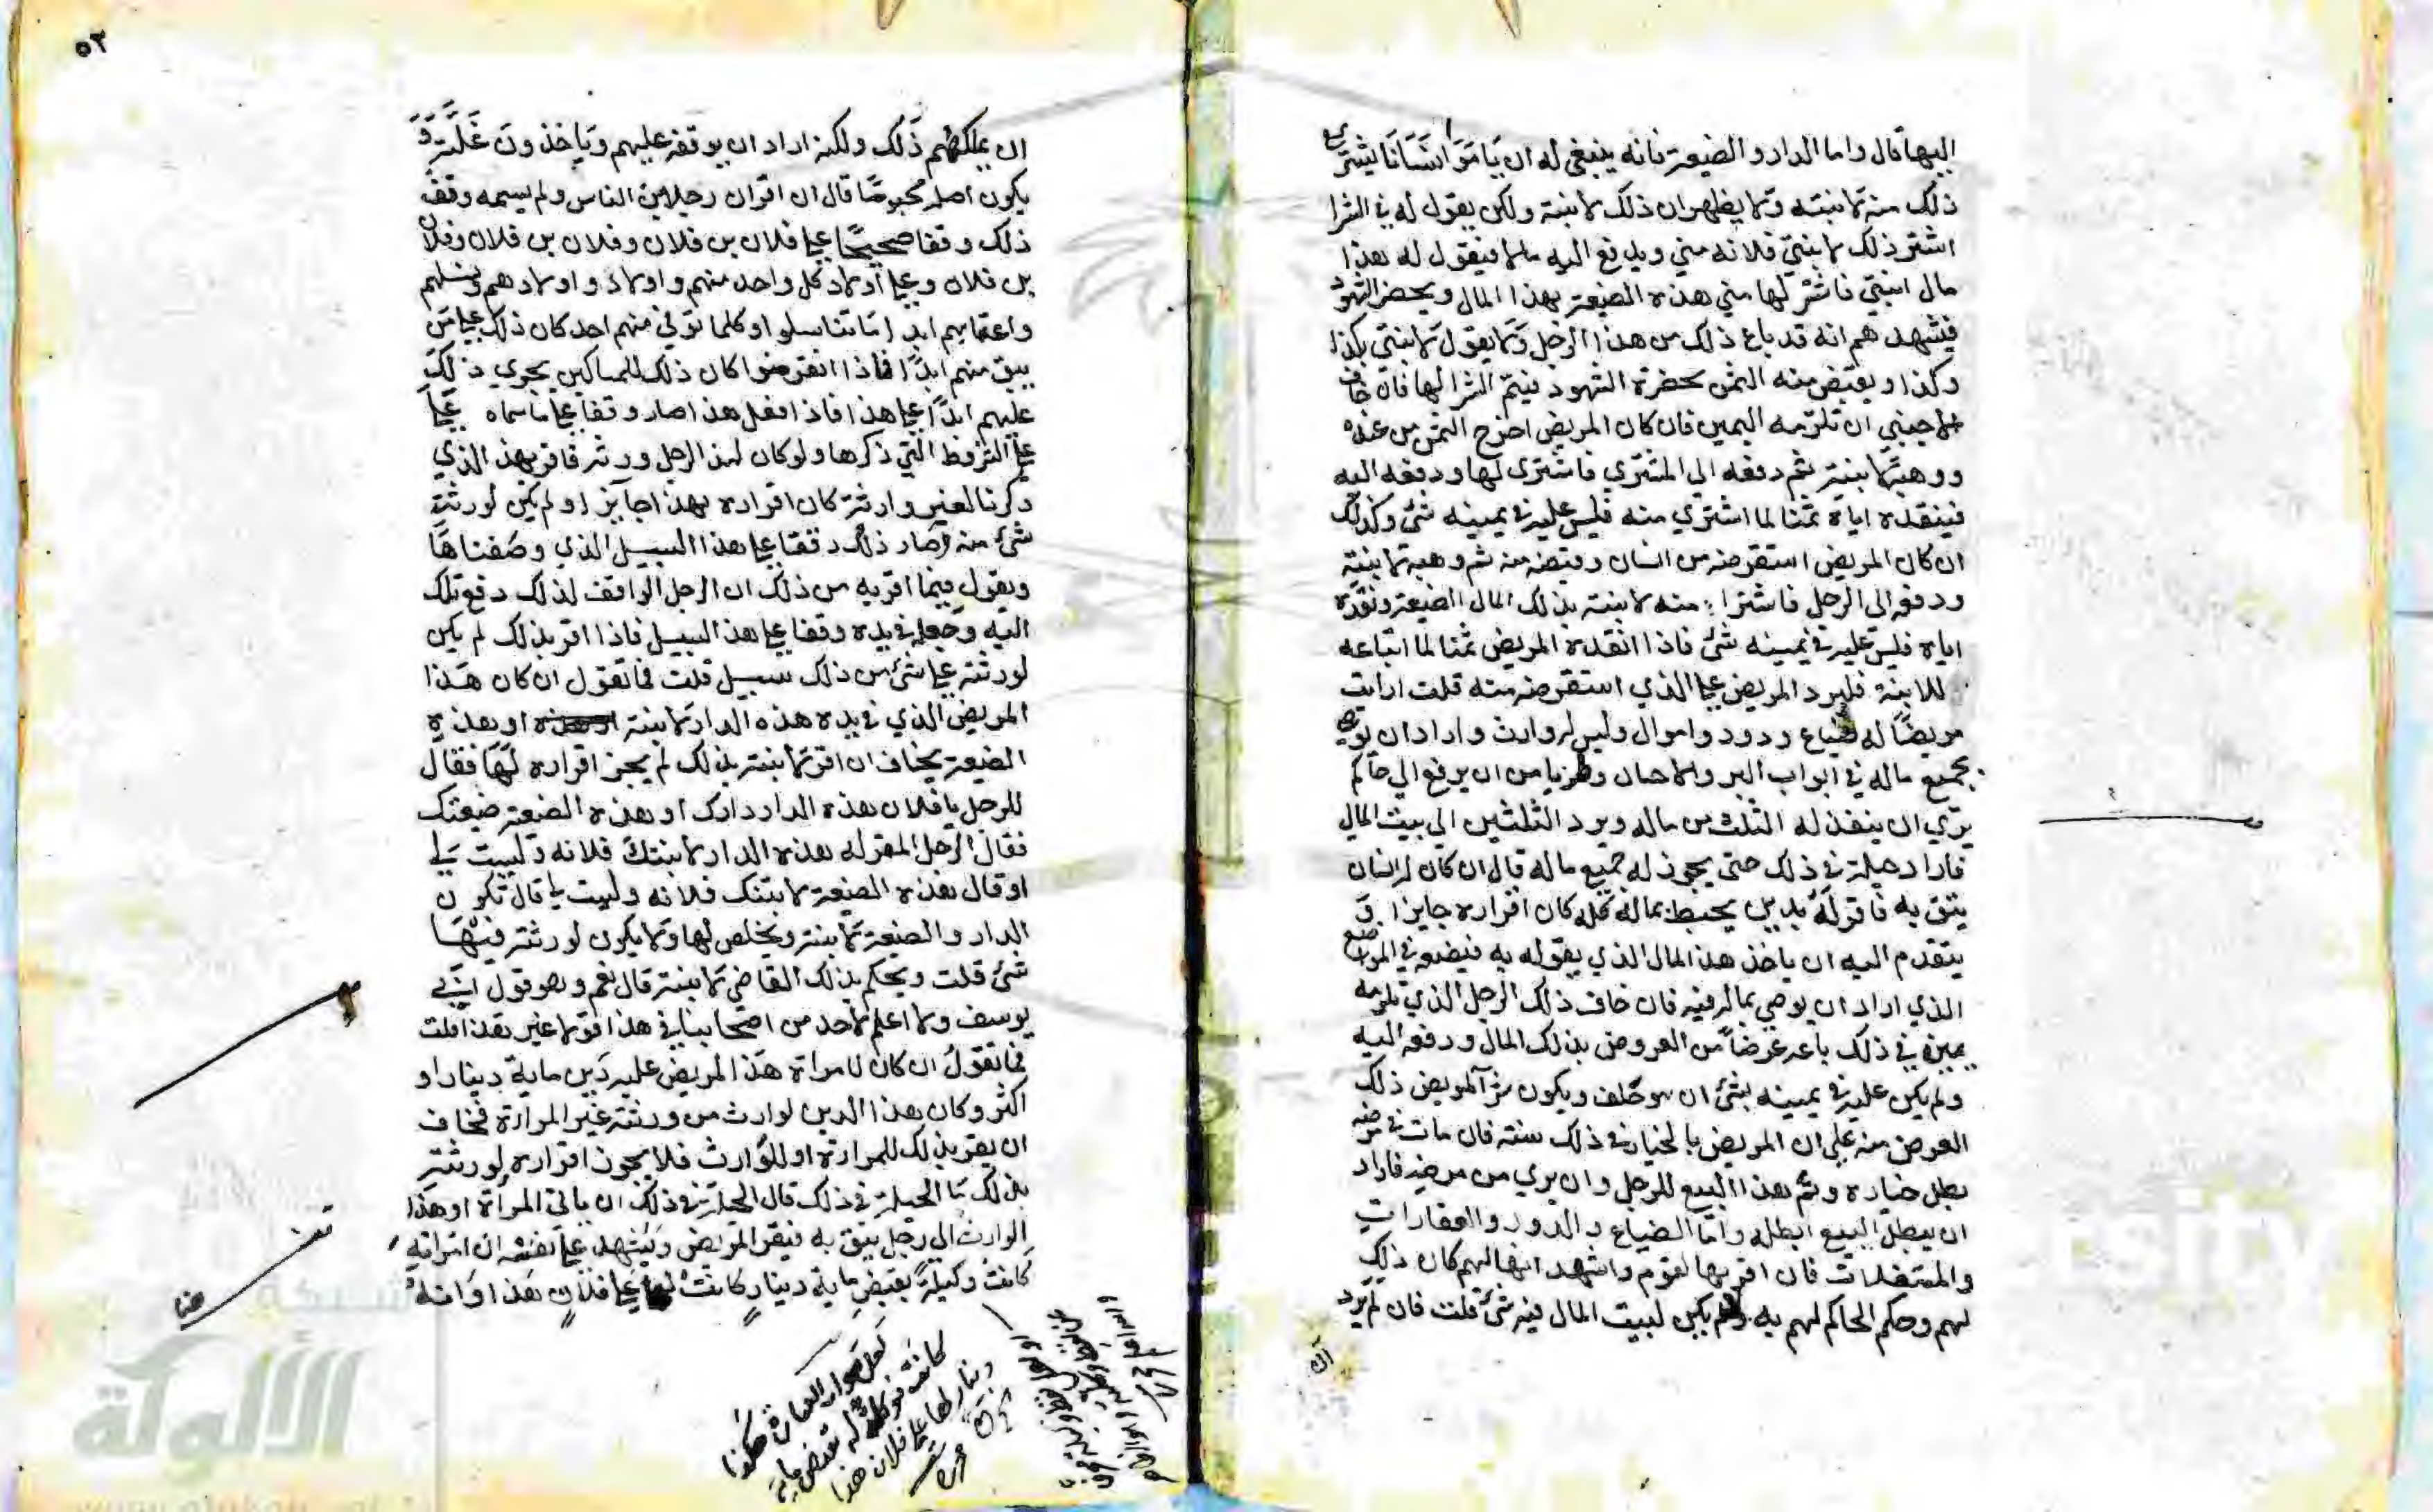 اليها قال واما الدار والضيعة فانه ينبغي له ان يامر انسانا يشتري
ذلك منه لابنته ولا يظهر ان ذلك لابنته ولكن يقول له في الشرا
اشتر ذلك لابنتي فلانه مني ويدفع اليه مالا فيقول له هذا
مال ابنتي فاشتر لها مني هذه الضيعة بهذا المال ويحضر الشهود
فيشهدهم انه قد باع ذلك من هذا الرجل ولا يقول لابنتي بكذا
وكذا ويقبض منه الثمن بحضرة الشهود فيتم الشرا لها فان خاف
الاجنبي ان تلزمه اليمين فان كان المريض اخرج الثمن من عنده
ووهبه لابنته ثم دفعه الى المشتري فاشترى لها ودفعه اليه
فينقده اياه ثمنا لما اشتري منه فليس عليه في يمينه شئ وكذلك
ان كان المريض استقرضه من انسان وقبضه منه ثم وهبه لابنته
ودفعه الى الرجل فاشترا منه لابنته بذلك المال الضيعة ونقده
اياه فليس عليه في يمينه شئ فاذا انقده المريض ثمنا لما ابتاعه
للابنة فليرد المريض على الذي استقرضه منه قلت ارايت
مريضا له ضياع ودور واموال وليس له وارث واراد ان يوصي
بجميع ماله في ابواب البر والاحسان ولم يامن ان يرفع الى حاكم
يرى ان ينفذ له الثلث من ماله ويرد الثلثين الى بيت المال
فاراد حيلة في ذلك حتى يجوز له جميع ماله قال ان كان له انسان
يثق به فاقر له بدين يحيط بماله كله كان اقراره جايزا و
يتقدم اليه ان ياخذ هذا المال الذي يقر له به فيضعه في المواضع
الذي اراد ان يوصي بماله فيه فان خاف ذلك الرجل الذي تلزمه
يمين في ذلك باعه عرضا من العروض بذلك المال ودفعه اليه
ولم يكن عليه في يمينه بشئ ان هو حلف ويكون شرا المريض ذلك
العرض منه على ان المريض بالخيار في ذلك سنة فان مات في مرضه
بطل خياره وتم هذا البيع للرجل وان بري من مرضه فاراد
ان يبطل البيع ابطله واما الضياع والدور والعقارات
والمستغلات فان اقر بها لقوم واشهد انها لهم كان ذلك
لهم وحكم الحاكم لهم به ولم يكن لبيت المال فيه شئ قلت فان لم يرد
ان
٥٢
ان يملكهم ذلك ولكنه اراد ان يوقفه عليهم وياخذون غلته و
يكون اصله محبوسا قال ان اقر ان رجلا من الناس ولم يسمه وقف
ذلك وقفا صحيحا على فلان بن فلان وفلان بن فلان وفلان
بن فلان وعلى اولاد كل واحد منهم واولاد اولادهم ونسلهم
واعقابهم ابدا ما تناسلوا وكلما توفي منهم احد كان ذلك على من
بقي منهم ابدا فاذا انقرضوا كان ذلك للمساكين يجري ذلك
عليهم ابدا على هذا فاذا فعل هذا صار وقفا على ما سماه على
على الشروط التي ذكرها ولو كان لهذا الرجل ورثة فاقر بهذا الذي
ذكرنا لغير وارثه كان اقراره بهذا جايزا ولم يكن لورثته
شئ منه وصار ذلك وقفا على هذا السبيل الذي وصفناها
ويقول فيما اقر به من ذلك ان الرجل الواقف لذلك دفع تلك
اليه وجعله في يده وقفا على هذا السبيل فاذا اقر بذلك لم يكن
لورثته على شئ من ذلك سبيل قلت فما تقول ان كان هذا
المريض الذي في يده هذه الدار لابنته او هذه
الضيعة يخاف ان اقر لابنته بذلك لم يجز اقراره لها فقال
للرجل يا فلان هذه الدار دارك او هذه الضيعة ضيعتك
فقال الرجل المقر له هذه الدار لابنتك فلانه وليست لي
او قال هذه الضيعة لابنتك فلانه وليست لي قال تكون
الدار والضيعة لابنته ويخلص لها ولا يكون لورثته فيها
شئ قلت ويحكم بذلك القاضي لابنته قال نعم وهو قول ابي
يوسف ولا اعلم لاحد من اصحابنا في هذا قولا غير هذا قلت
فما تقول ان كان لامراة هذا المريض عليه دين ماية دينار او
اكثر وكان هذا الدين لوارث من ورثته غير المراة فخاف
ان يقر بذلك للمراة او للوارث فلا يجوز اقراره لورثته
بذلك ما الحيلة في ذلك قال الحيلة في ذلك ان ياتي المراة او هذا
الوارث الى رجل يثق به فيقر المريض ويشهد على نفسه ان امراته
كانت وكيلة بقبض ماية دينار كانت لها على فلان هذا وانه
لعل صواب العبارة هكذا
كانت موكلة له بقبض ماية
دينار لها على فلان هذا